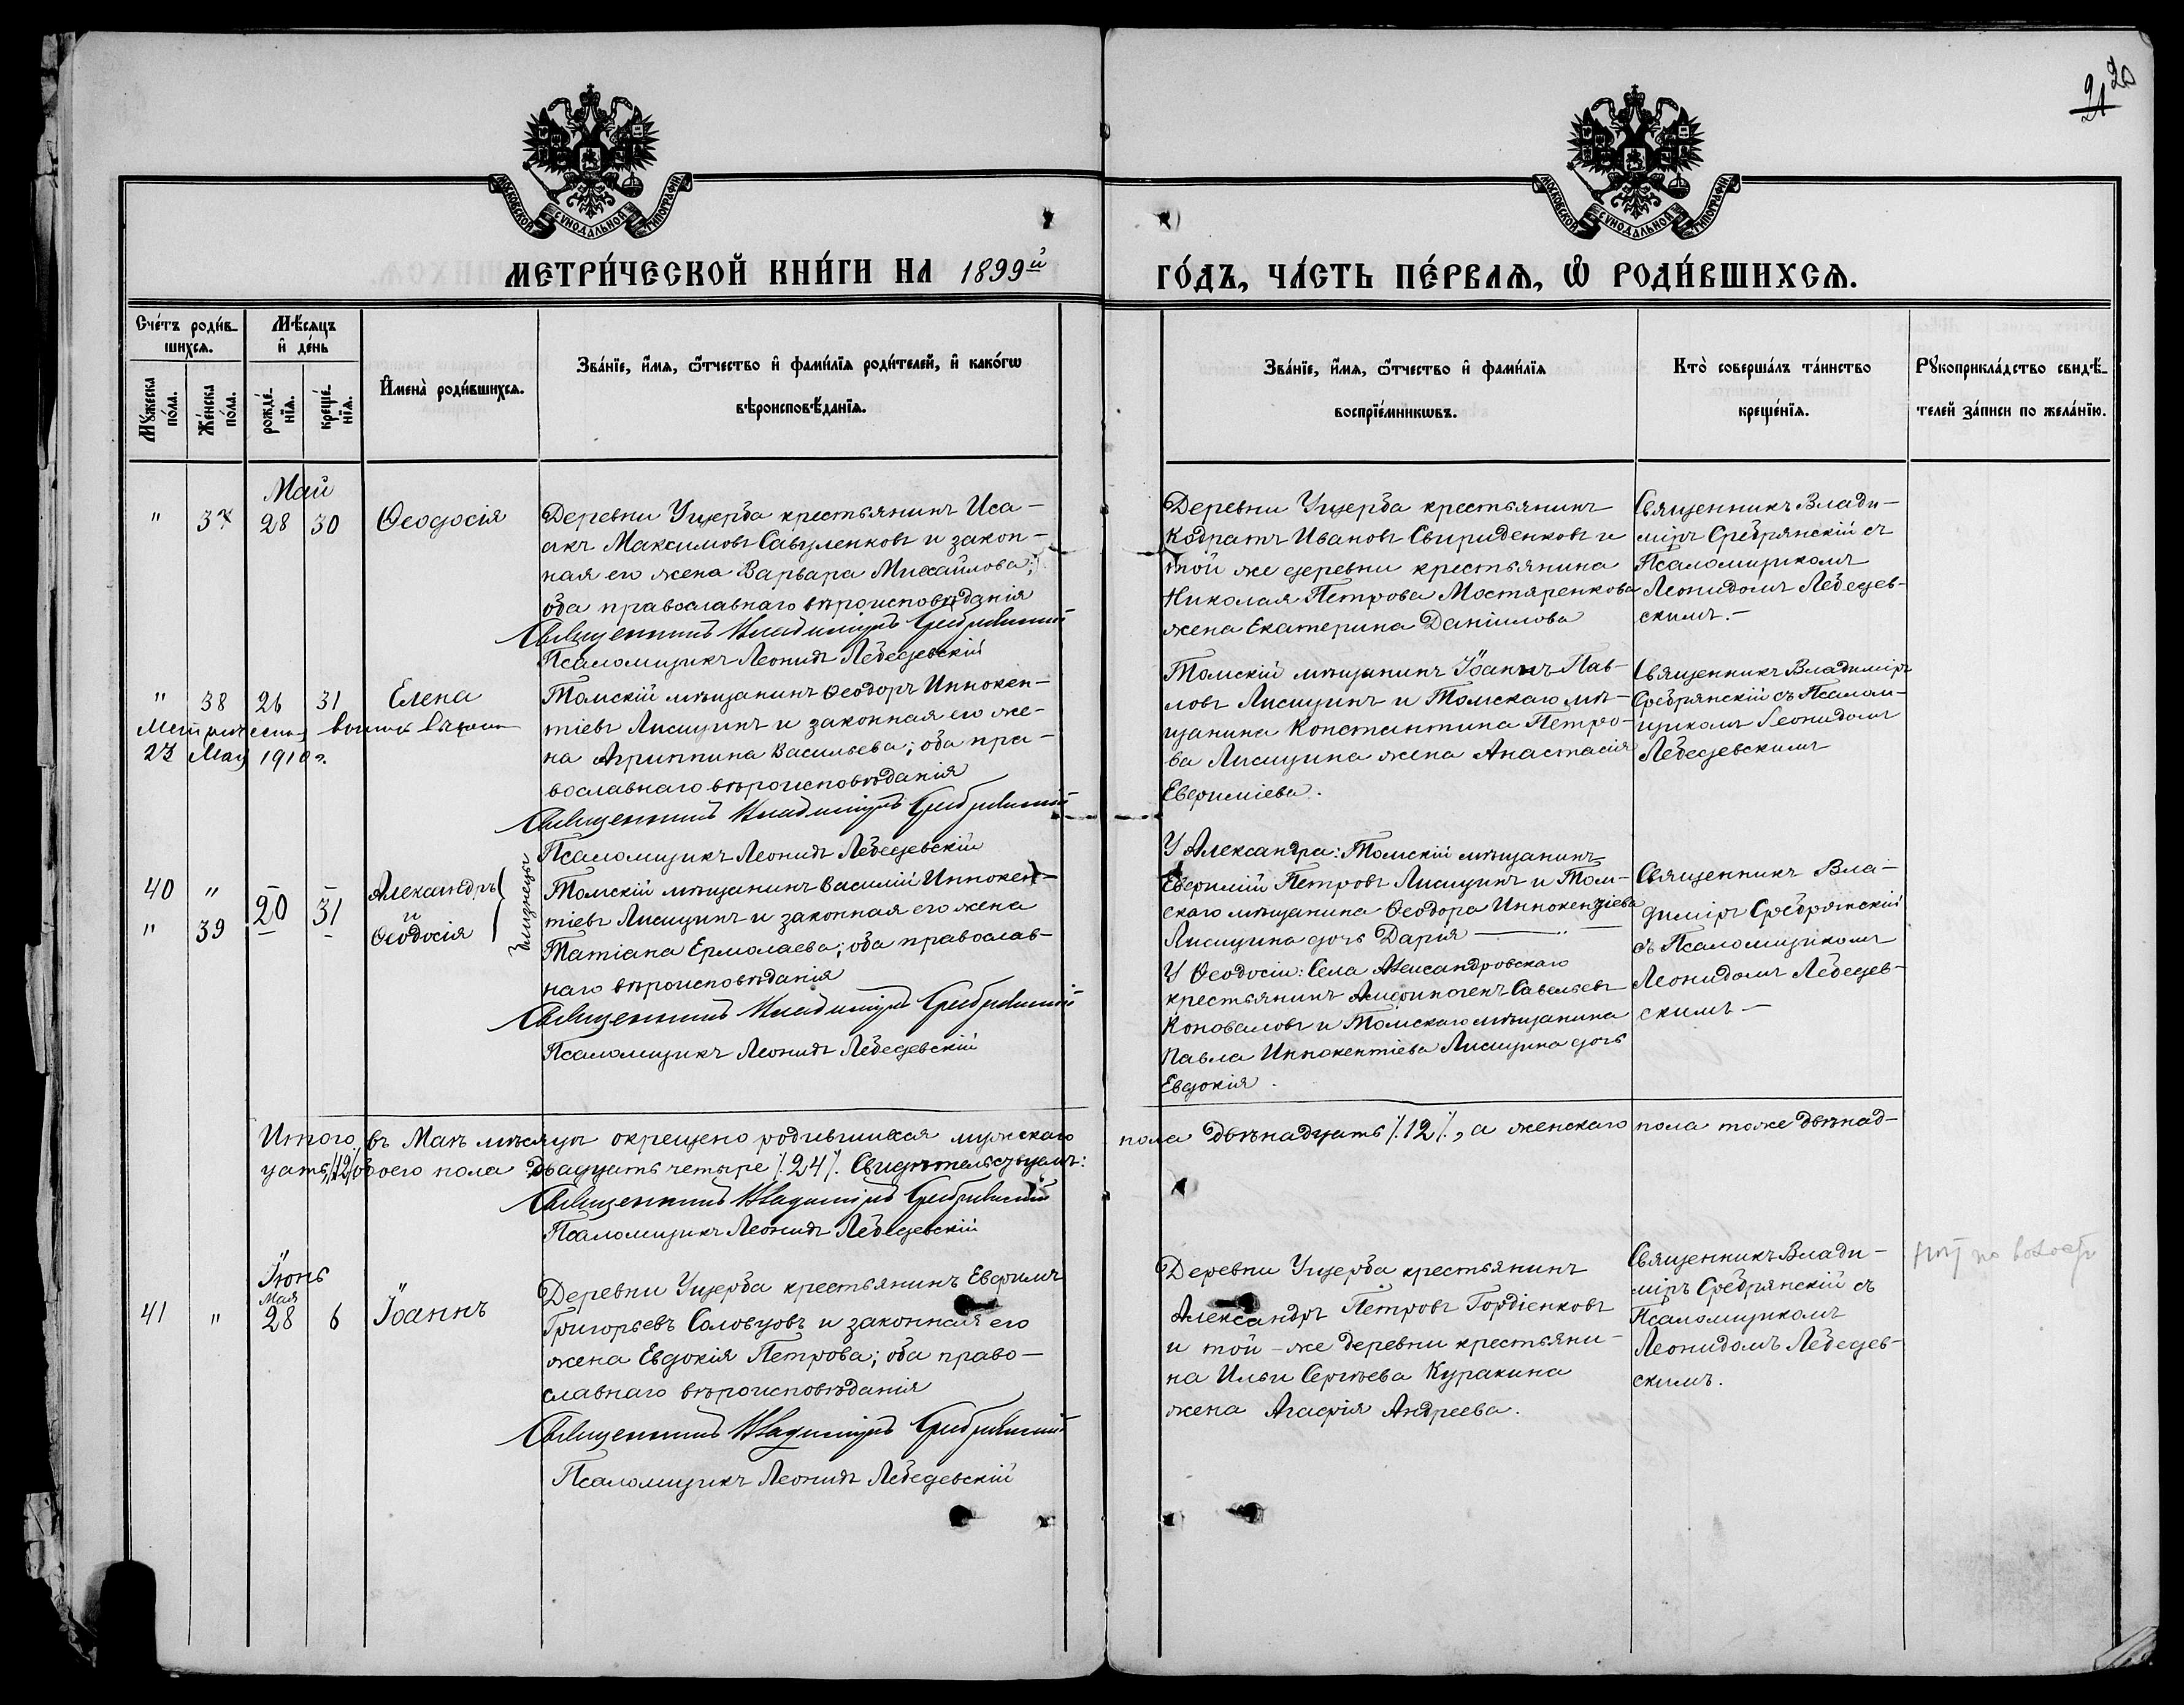 20
21
МОСКОВСКОЙ СѴНОДАЛЬНОЙ ТИПОГРАФІИ
МОСКОВСКОЙ СѴНОДАЛЬНОЙ ТИПОГРАФІИ
МЕТРИ́ЧЕСКОЙ КНИ́ГИ НА 1899й
ГО́ДЪ, ЧА́СТЬ ПЕ́РВАѦ, Ѽ РОДИ́ВШИХСѦ.
Сче́тъ роди́в-
шихсѧ.
Мѣ́сѧцъ
и҆ де́нь
Мꙋ́жеска
по́ла.
Же́нска
по́ла.
рожде́-
нїѧ.
креще́-
нїѧ.
И҆мена̀ роди́вшихсѧ.
Зва́нїе, и҆́мѧ, ѻ҆́тчество и҆ фами́лїѧ роди́телей, и҆ како́гѡ
вѣроисповѣ́данїѧ.
Зва́нїе, и҆́мѧ, ѻ҆́тчество и҆ фами́лїѧ
воспрїе́мникѡвъ.
Кто̀ соверша́лъ та́инство
креще́нїѧ.
Рꙋкоприкла́дство свидѣ́-
телей за́писи по жела́нїю.
Май
" 37 28 30 Ѳеодосія
Деревни Ущерба крестьянинъ Иса-
акъ Максимовъ Савуленковъ и закон-
ная его жена Варвара Михайлова;
оба православнаго вѣроисповѣданія
Священникъ Владиміръ Сребрянскій
Псаломщикъ Леонидъ Лебедевскій
Деревни Ущерба крестьянинъ
Кодратъ Ивановъ Свириденковъ и
той же деревни крестьянина
Николая Петрова Мостяренкова
жена Екатерина Даніилова
Священникъ Влади-
міръ Сребрянскій съ
Псаломщикомъ
Леонидомъ Лебедев-
скимъ.-
" 38 26 31 Елена
23 Мая 1910 г.
Томскій мѣщанинъ Ѳеодоръ Иннокен-
тіевъ Лисицинъ и законная его же-
на Агриппина Васильева; оба пра-
вославнаго вѣроисповѣданія
Священникъ Владиміръ Сребрянскій
Псаломщикъ Леонидъ Лебедевскій
Томскій мѣщанинъ Іоаннъ Пав-
ловъ Лисицинъ и Томскаго мѣ-
щанина Константина Петро-
ва Лисицина жена Анастасія
Евфиміева.
Священникъ Владиміръ
Сребрянскій съ Псалом-
щикомъ Леонидомъ
Лебедевскимъ
40 " 20 31 Александръ
и
" 39 Ѳеодосія
близнецы
Томскій мѣщанинъ Василій Иннокен-
тіевъ Лисицинъ и законная его жена
Татіана Ермолаева; оба православ-
наго вѣроисповѣданія
Священникъ Владиміръ Сребрянскій
Псаломщикъ Леонидъ Лебедевскій
У Александра: Томскій мѣщанинъ
Евфимій Петровъ Лисицинъ и Том-
скаго мѣщанина Ѳеодора Иннокентіева
Лисицина дочь Дарія
У Ѳеодосіи: Села Александровскаго
крестьянинъ Анфиногенъ Савельевъ
Коноваловъ и Томскаго мѣщанина
Павла Иннокентіева Лисицина дочь
Евдокія.
Священникъ Вла-
диміръ Сребрянскій
съ Псаломщикомъ
Леонидомъ Лебедев-
скимъ-
Итого въ Маѣ мѣсяцѣ окрещено родившихся мужскаго пола двѣнадцать /12/, а женскаго пола тоже двѣнад-
цать /12/ обоего пола двадцать четыре /24/. Свидѣтельствуемъ:
Священникъ Владиміръ Сребрянскій
Псаломщикъ Леонидъ Лебедевскій
Іюнь
Мая
41 " 28 6 Іоаннъ
Деревни Ущерба крестьянинъ Евфимъ
Григорьевъ Соловцовъ и законная его
жена Евдокія Петрова; оба право-
славнаго вѣроисповѣданія
Священникъ Владиміръ Сребрянскій
Псаломщикъ Леонидъ Лебедевскій
Деревни Ущерба крестьянинъ
Александръ Петровъ Гордіенковъ
и той-же деревни крестьяни-
на Ильи Сергѣева Куракина
жена Агафія Андреева.
Священникъ Влади-
міръ Сребрянскій съ
Псаломщикомъ
Леонидомъ Лебедев-
скимъ.